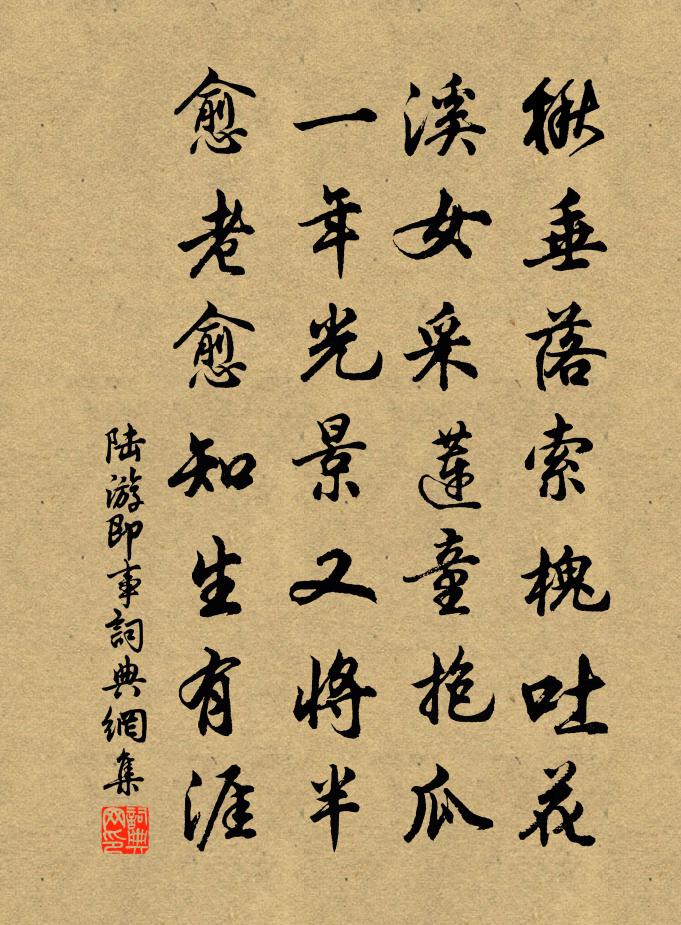 楸垂落索槐吐花
溪女采蓮童抱瓜
一年光景又將半
愈老愈知生有涯
陆游即事詞典網集
詞典网印